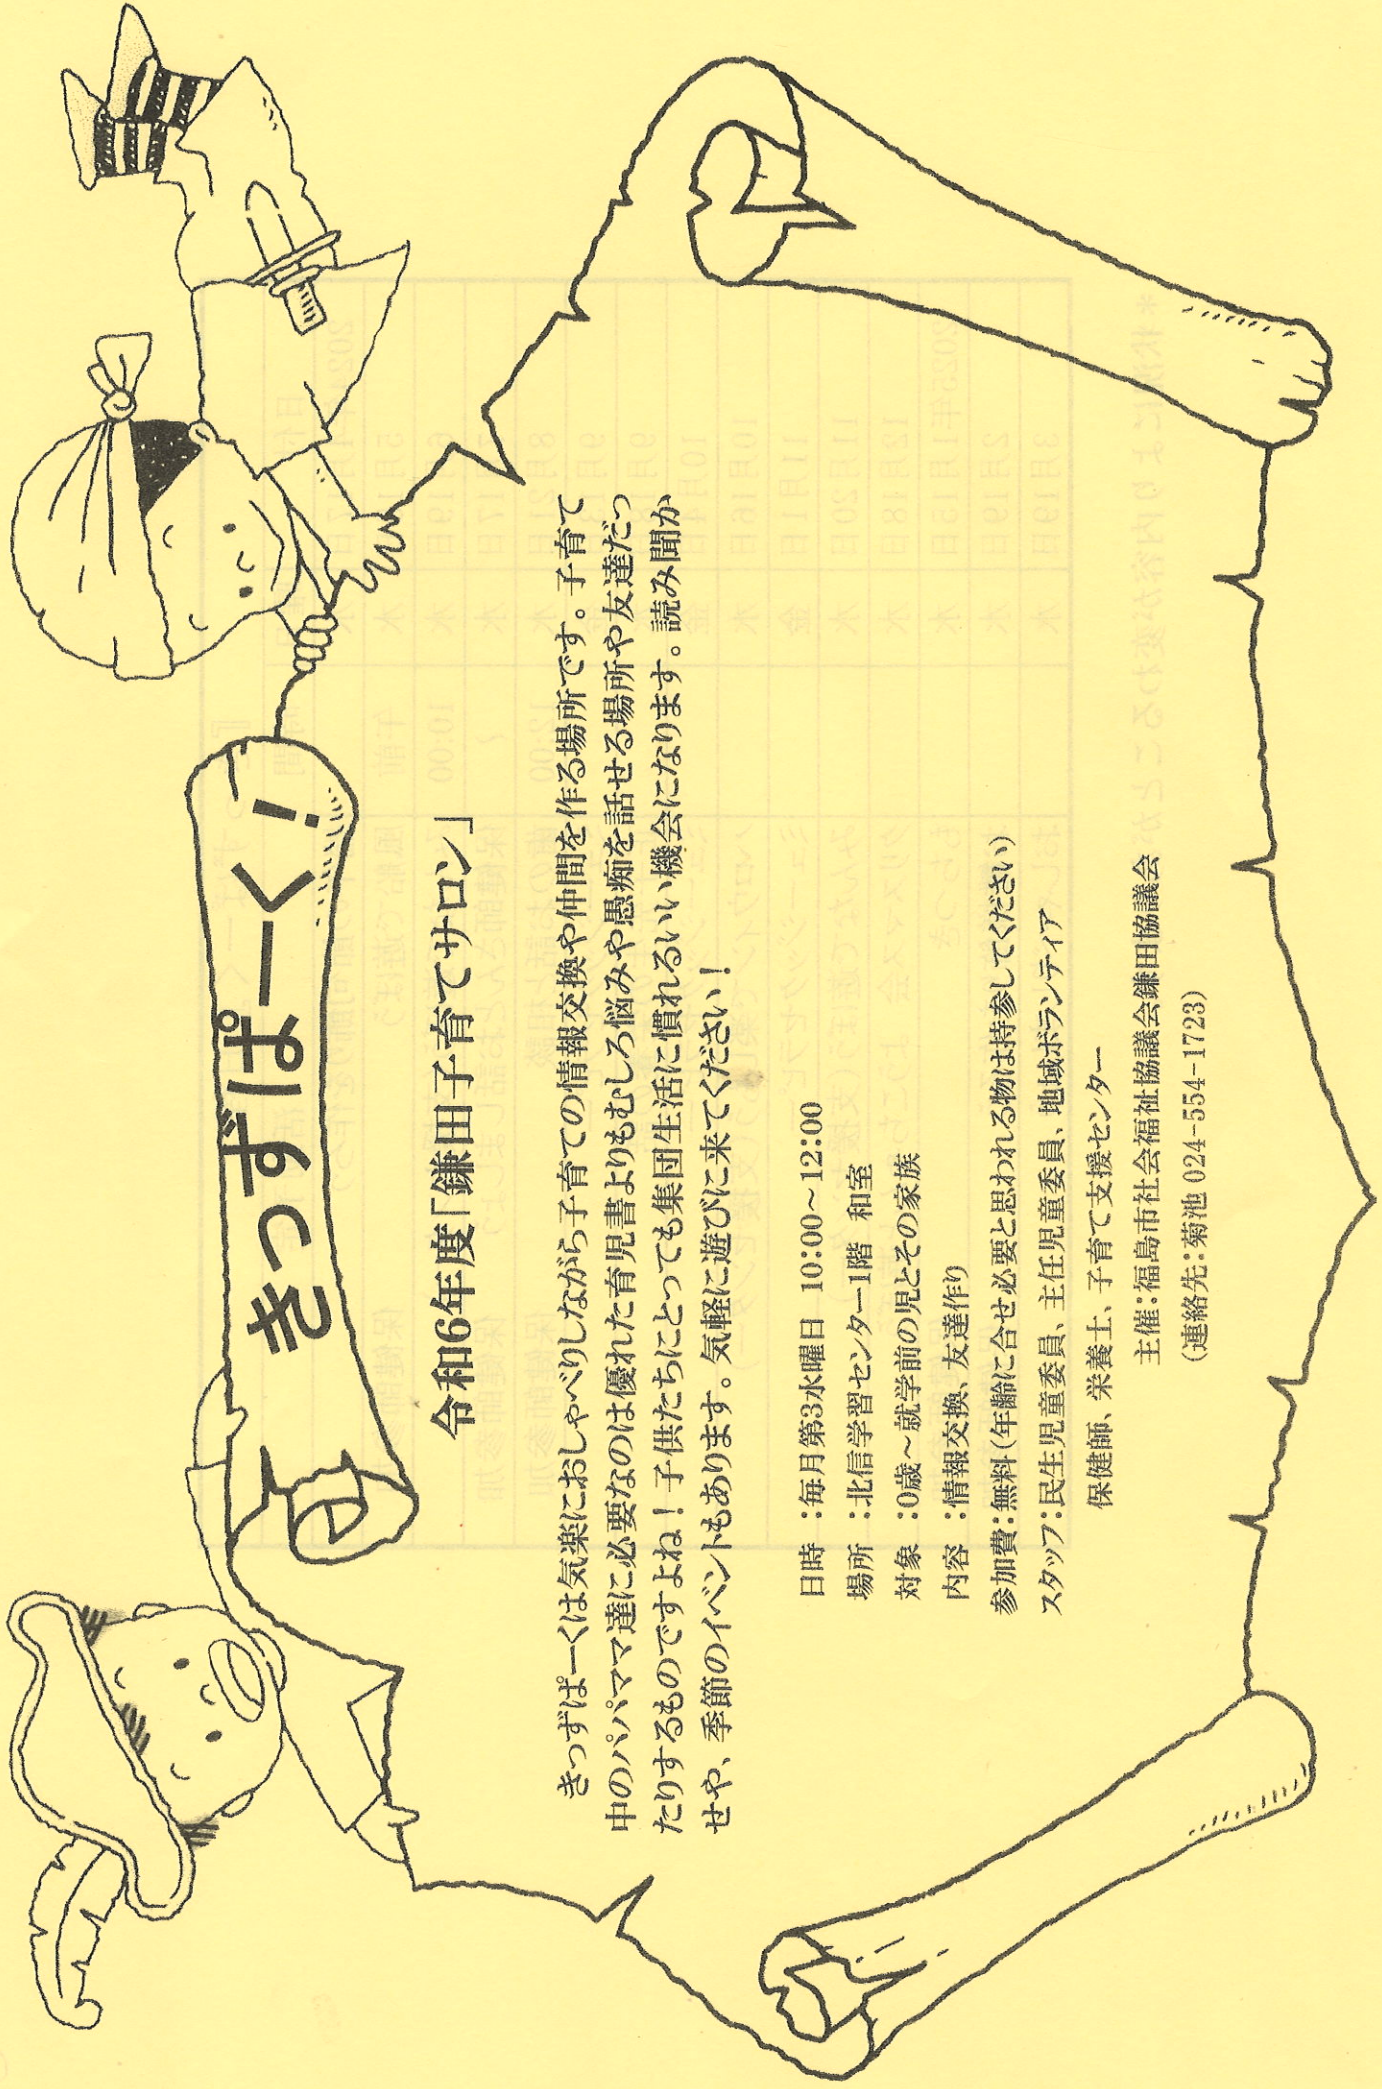 きっずぱーく！
令和6年度「鎌田子育てサロン」
きっずぱーくは気楽におしゃべりしながら子育ての情報交換や仲間を作る場所です。子育て
中のパパママ達に必要なのは優れた育児書よりもむしろ悩みや愚痴を話せる場所や友達だっ
たりするものですよね！子供たちにとっても集団生活に慣れるいい機会になります。読み聞か
せや、季節のイベントもあります。気軽に遊びに来てください！
日時　：毎月第3水曜日　10:00～12:00
場所　：北信学習センター1階　和室
対象　：0歳～就学前の児とその家族
内容　：情報交換、友達作り
参加費：無料（年齢に合せ必要と思われる物は持参してください）
スタッフ：民生児童委員、主任児童委員、地域ボランティア
保健師、栄養士、子育て支援センター
主催：福島市社会福祉協議会鎌田協議会
（連絡先：菊池 024-554-1723）